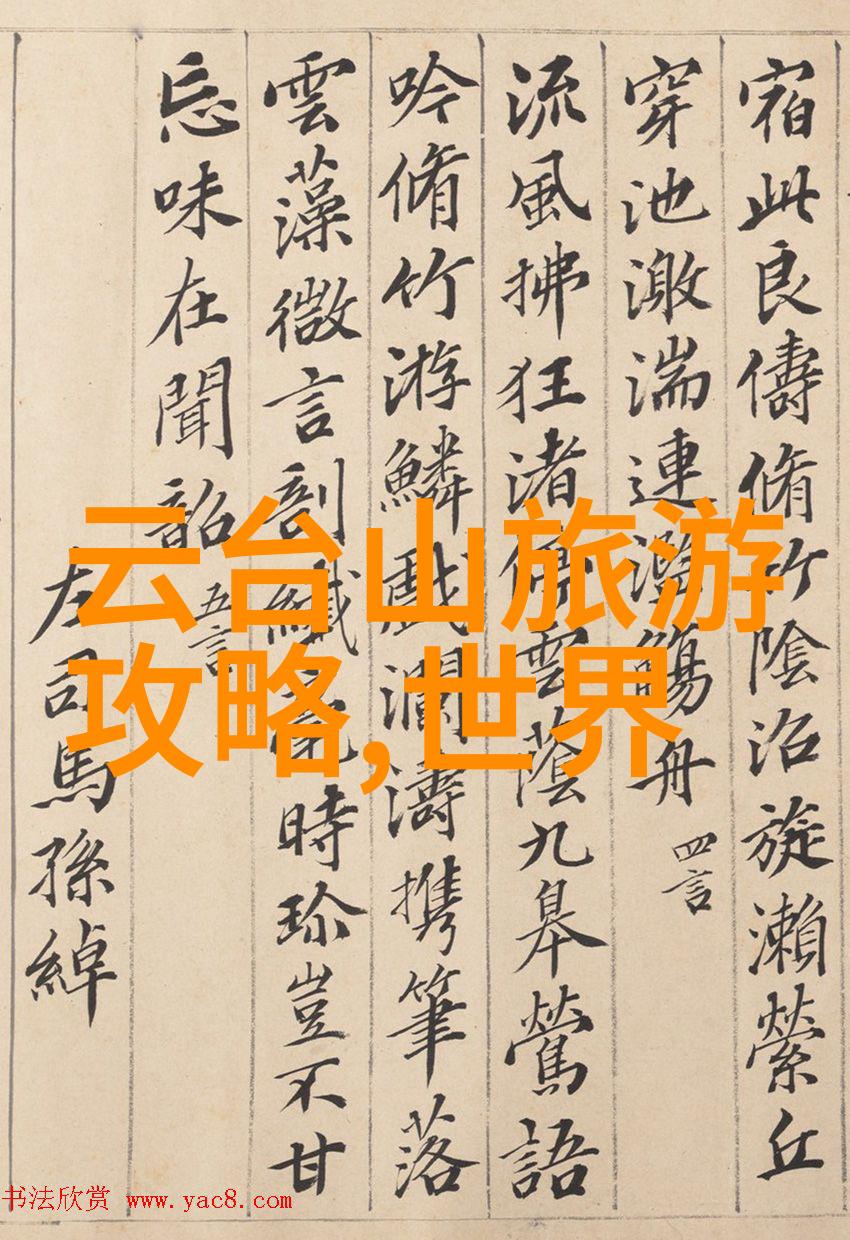 宿此良儔脩竹陰沼旋瀨縈丘
穿池激湍連濫觴舟 四言
流風拂狂渚停雲蔭九皋鶯語
吟脩竹游鱗戲瀾濤携筆落
雲藻微言剖纖毫時珍豈不甘
忘味在聞韶 五言
左司馬孫綽
云台山旅游
攻略,世界
书法欣赏 www.yac8.com